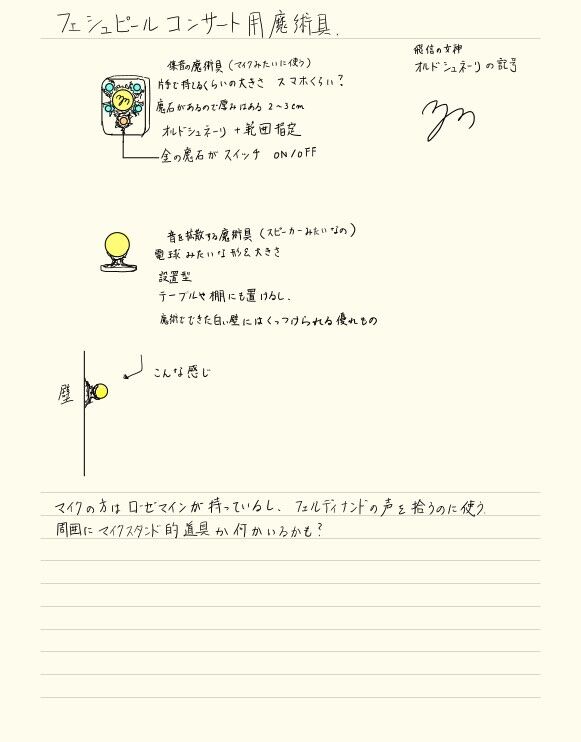 フェシュピール コンサート用魔術具.
飛信の女神
オルドシュネーリの記号
録音の魔術具(マイクみたいに使う)
片手で持てるくらいの大きさ スマホくらい?
魔石があるので厚みはある 2~3cm
オルドシュネーリ + 範囲指定
金の魔石がスイッチ ON/OFF
音を拡散する魔術具(スピーカーみたいなの)
電球みたいな形&大きさ
設置型
テーブルや棚にも置けるし、
魔術でできた白い壁にはくっつけられる優れもの
こんな感じ
壁
マイクの方はローゼマインが持っているし、フェルディナンドの声を拾うのに使う
周囲にマイクスタンド的道具か何かいるかも?